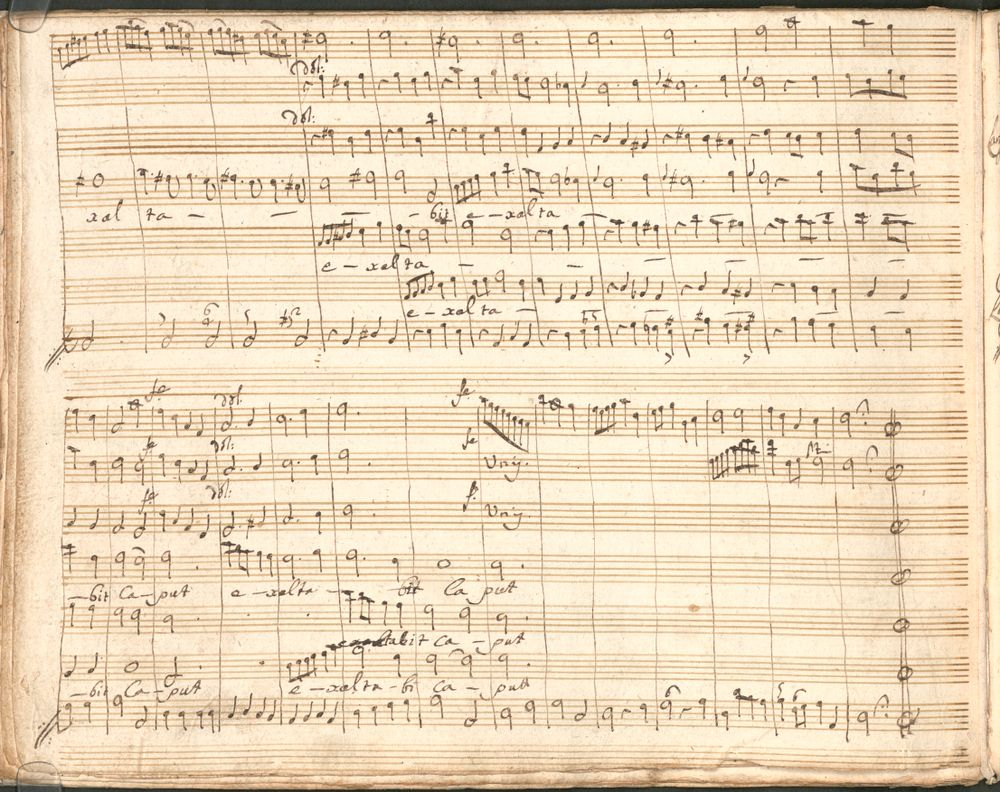 dol:
dol:
xal ta — — — bit e — xalta —
e — xal ta — — — — —
e — xalta — — — — —
fe dol. fe
fe dol: fe
Unij.
fe dol: f:
Unij.
— bit Ca — put e — xalta — bit Ca put
exaltabit Ca — put
— bit Ca — put e — xalta — bi Ca — put